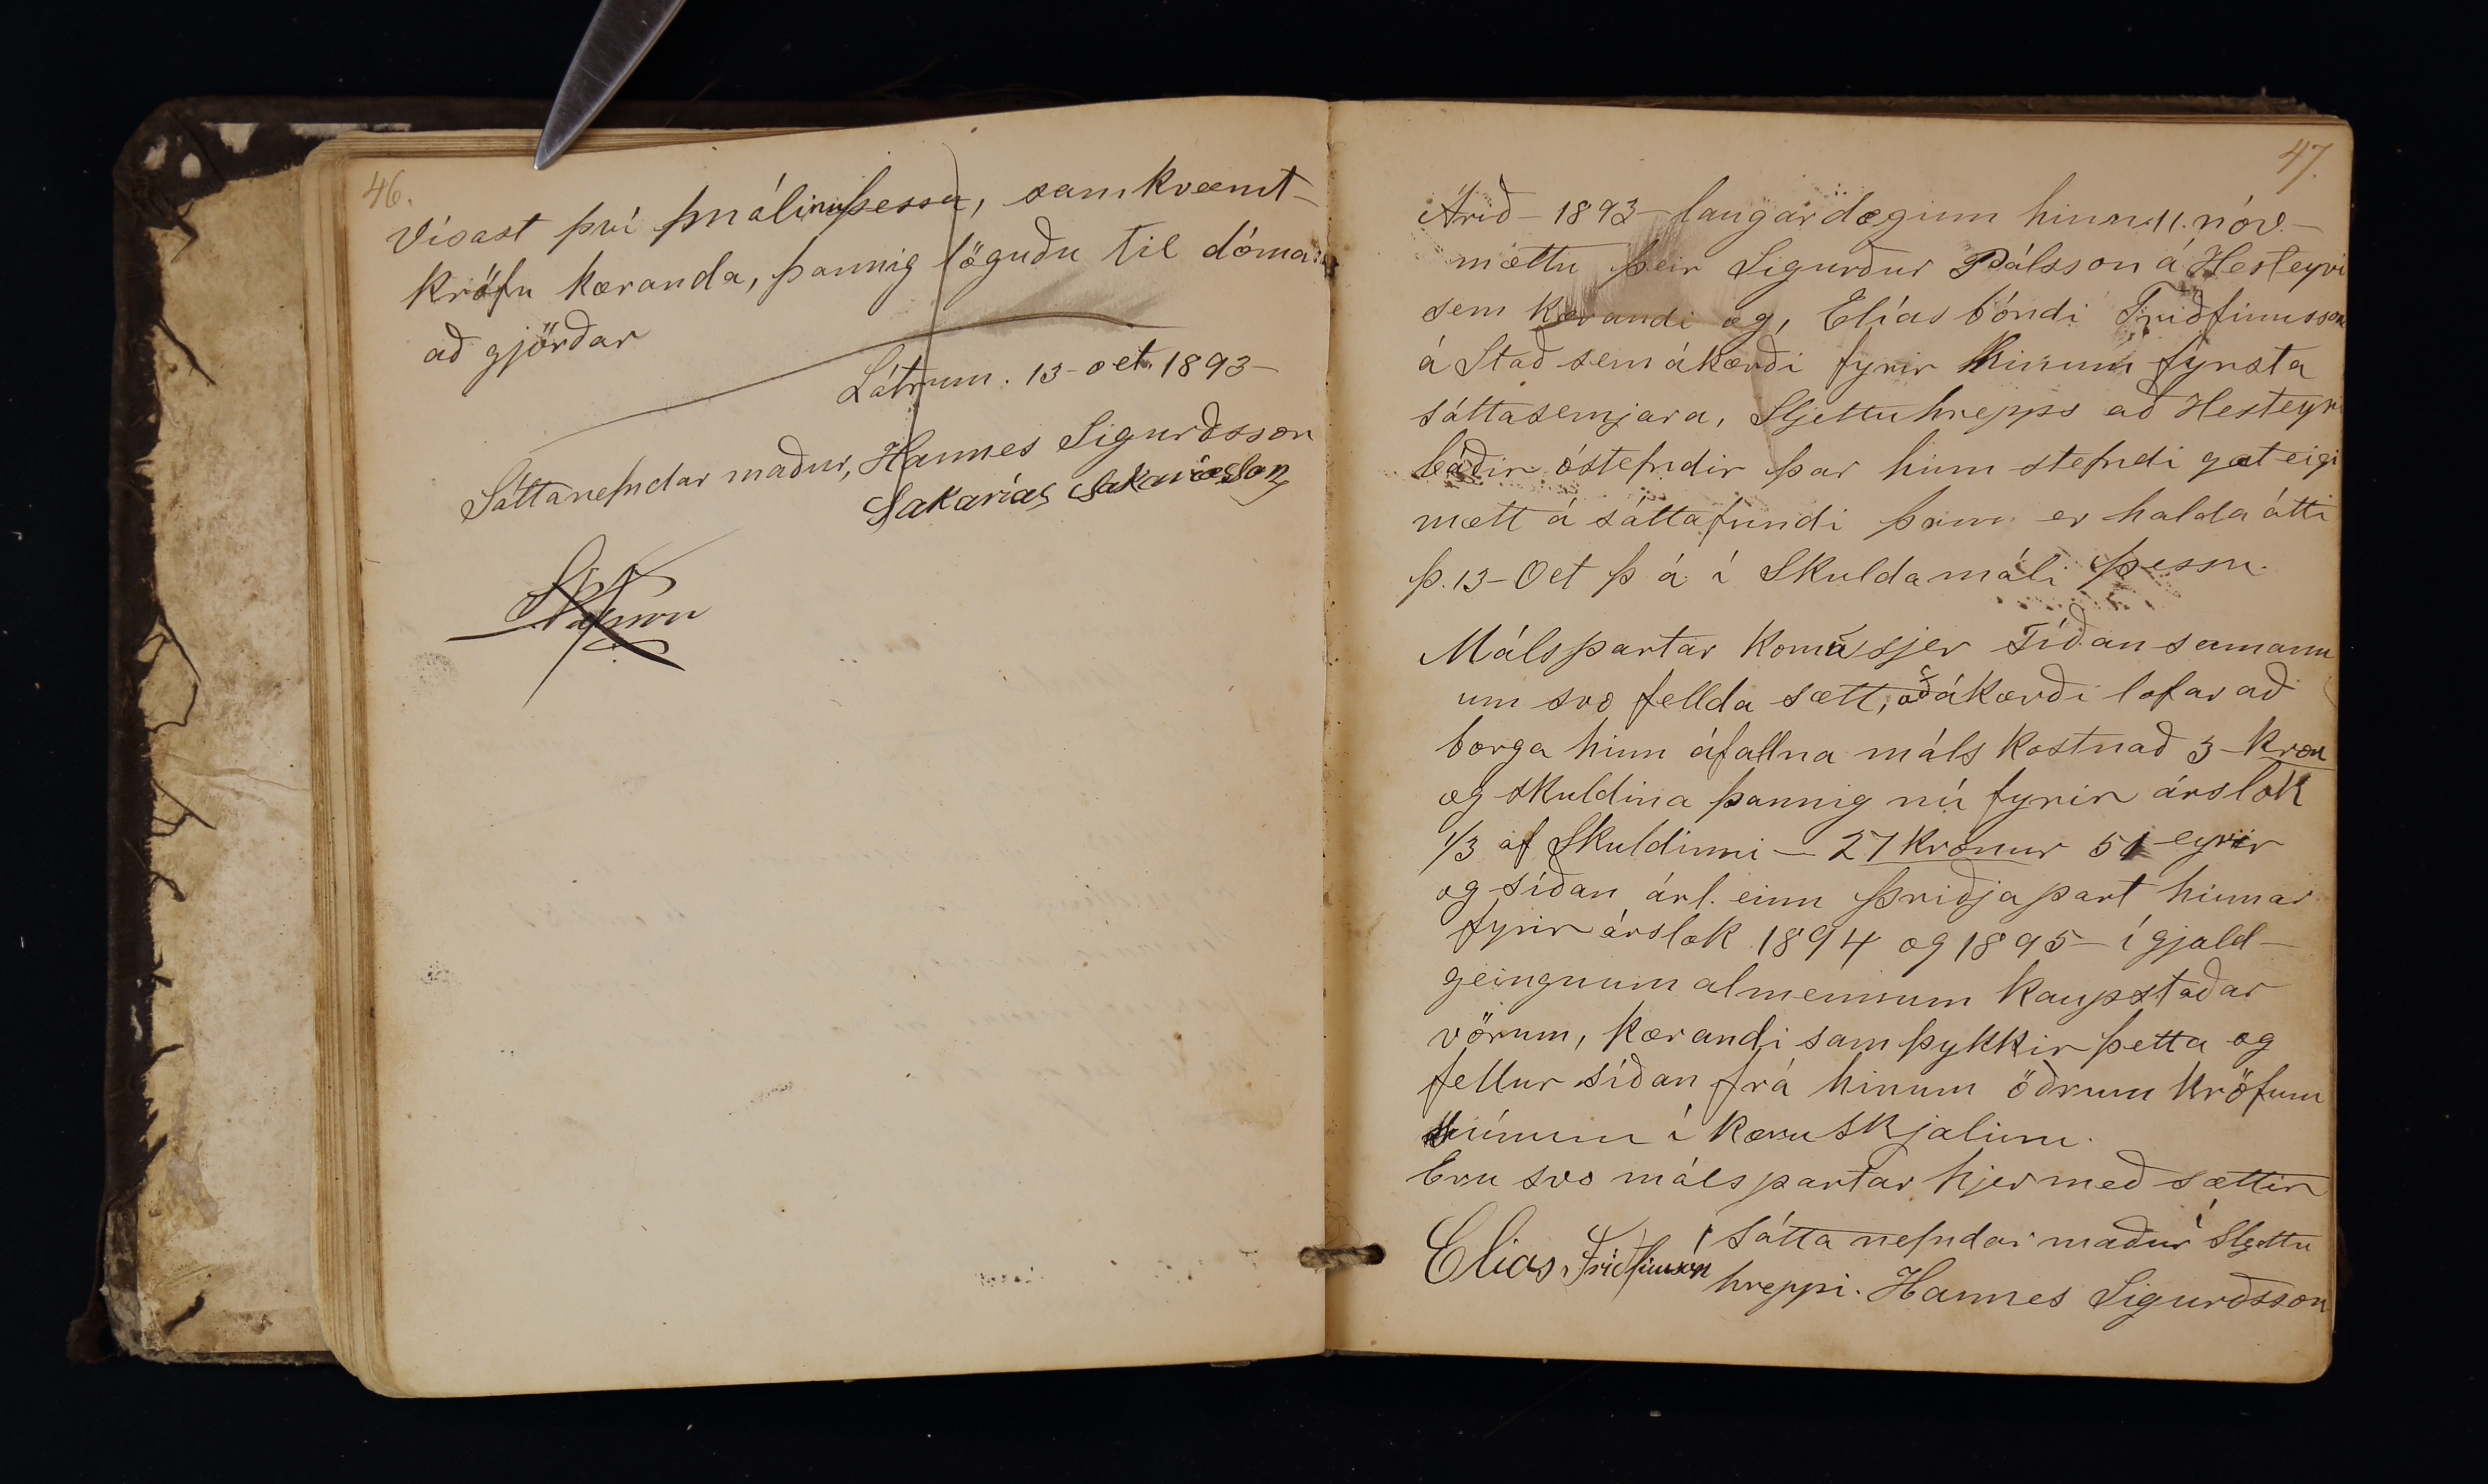 46.
Vísast því málinu þessu, samkvæmt
kröfu kæranda, þannig löguðu til dóma
að gjörðar
Látrum. 13-oct. 1893-
Sáttanefndar maður, Hannes Sigurðsson
Sakarías Sakaríasson
47.
Árið - 1893 - laugardæginn hinn 11. nóv. -
mættu þeir Sigurður Pálsson á Hesteyri
sem kærandi og, Elías bóndi Friðfinnsson
á Stað sem ákærði fyrir hinum fyrsta
sáttasemjara, Sljettuhrepps að Hesteyri
báðir óstefndir þar hinn stefndi gat eigi
mætt á sáttafundi þeim er halda átti
þ. 13-Oct þ á í Skuldamáli þessu.
Málspartar komu sjer síðan samann
um svo fellda sætt, að ákærði lofar að
borga hinn áfallna máls kostnað 3-kron
og skuldina þannig nú fyrir árslok
1/3 af Skuldinni - 27 kronur 51 eyrir
og síðan árl. einn þriðja part hinnar
fyrir árslok 1894 og 1895 - í gjald-
geingnum almennum kaupstaðar
vörum, kærandi samþykkir þetta og
fellur síðan frá hinum öðrum kröfum
sínum í kæru skjalinu.
Eru svo málspartar hjer með sættir
Sátta nefndar maður í Sljettu
Elias Friðfinnsón
hreppi. Hannes Sigurðsson